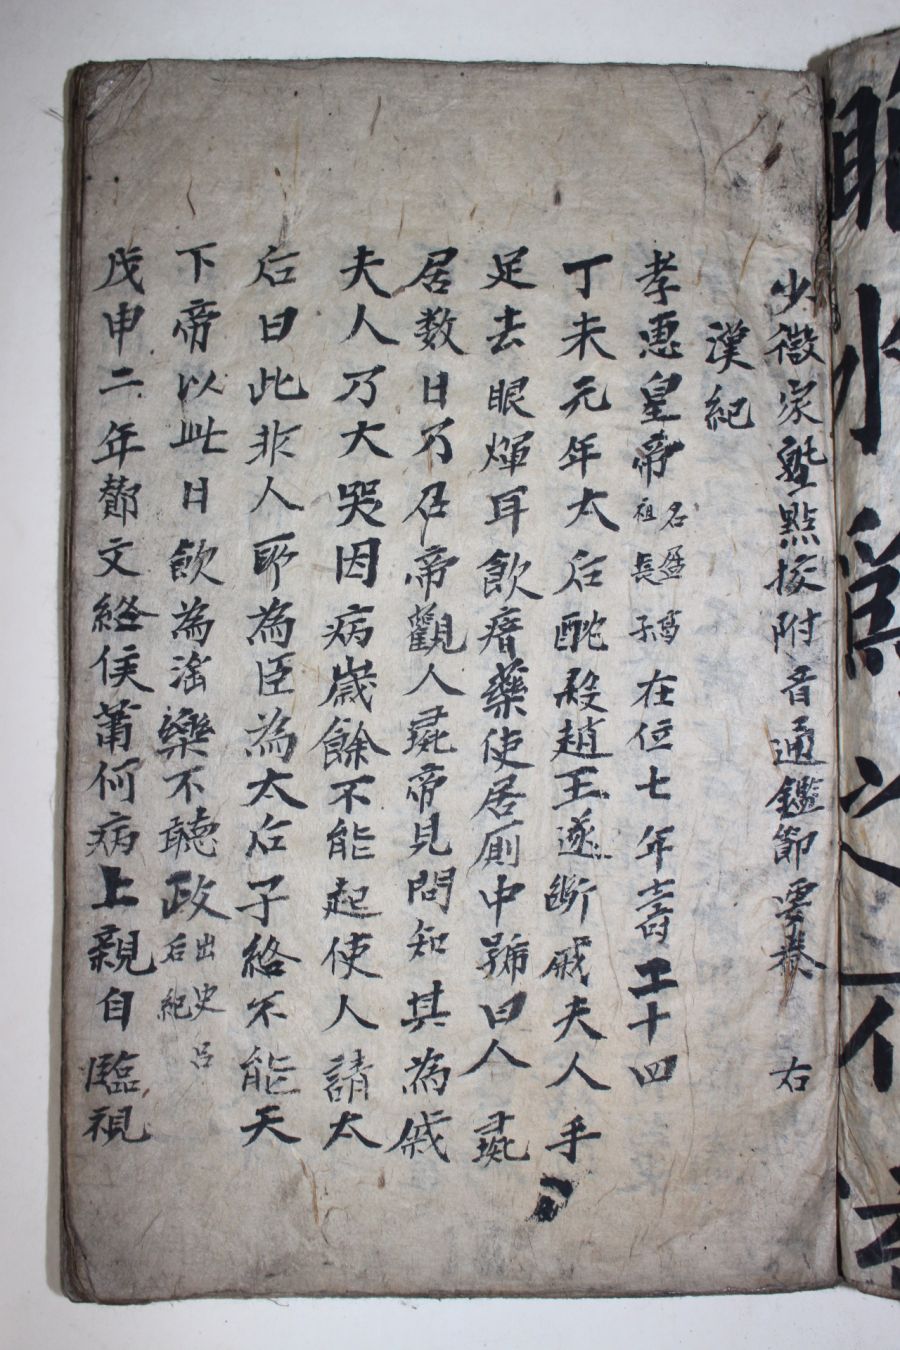 少微家塾點授附音通鑑節要卷 右
漢紀
孝惠皇帝 名盈高祖長子 在位七年壽二十四
丁未元年太后酖殺趙王遂斷戚夫人手
足去眼煇耳飲瘖藥使居厠中號曰人彘
居数日乃召帝觀人彘帝見問知其為戚
夫人乃大哭因病歲餘不能起使人請太
后曰此非人所為臣為太后子終不能天
下帝以此日飲為滛樂不聽政 出史呂后紀
戊申二年酂文終侯萧何病上親自臨視